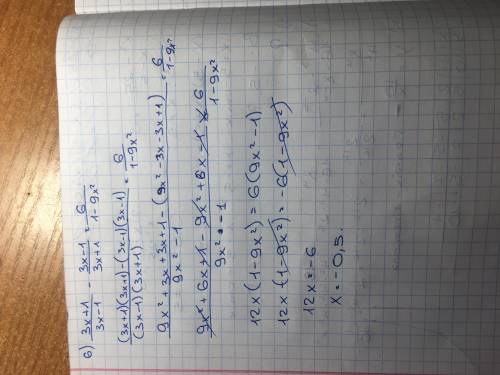 6) (3x+1)/(3x-1) - (3x-1)/(3x+1) = 6/(1-9x²)
((3x+1)(3x+1)-(3x-1)(3x-1))/((3x-1)(3x+1)) = 6/(1-9x²)
(9x²+3x+3x+1-(9x²-3x-3x+1))/(9x²-1) = 6/(1-9x²)
(9x²+6x+1-9x²+6x-1)/(9x²-1) = 6/(1-9x²)
12x(1-9x²)=6(9x²-1)
12x(1-9x²)=-6(1-9x²)
12x=-6
x=-0,5.